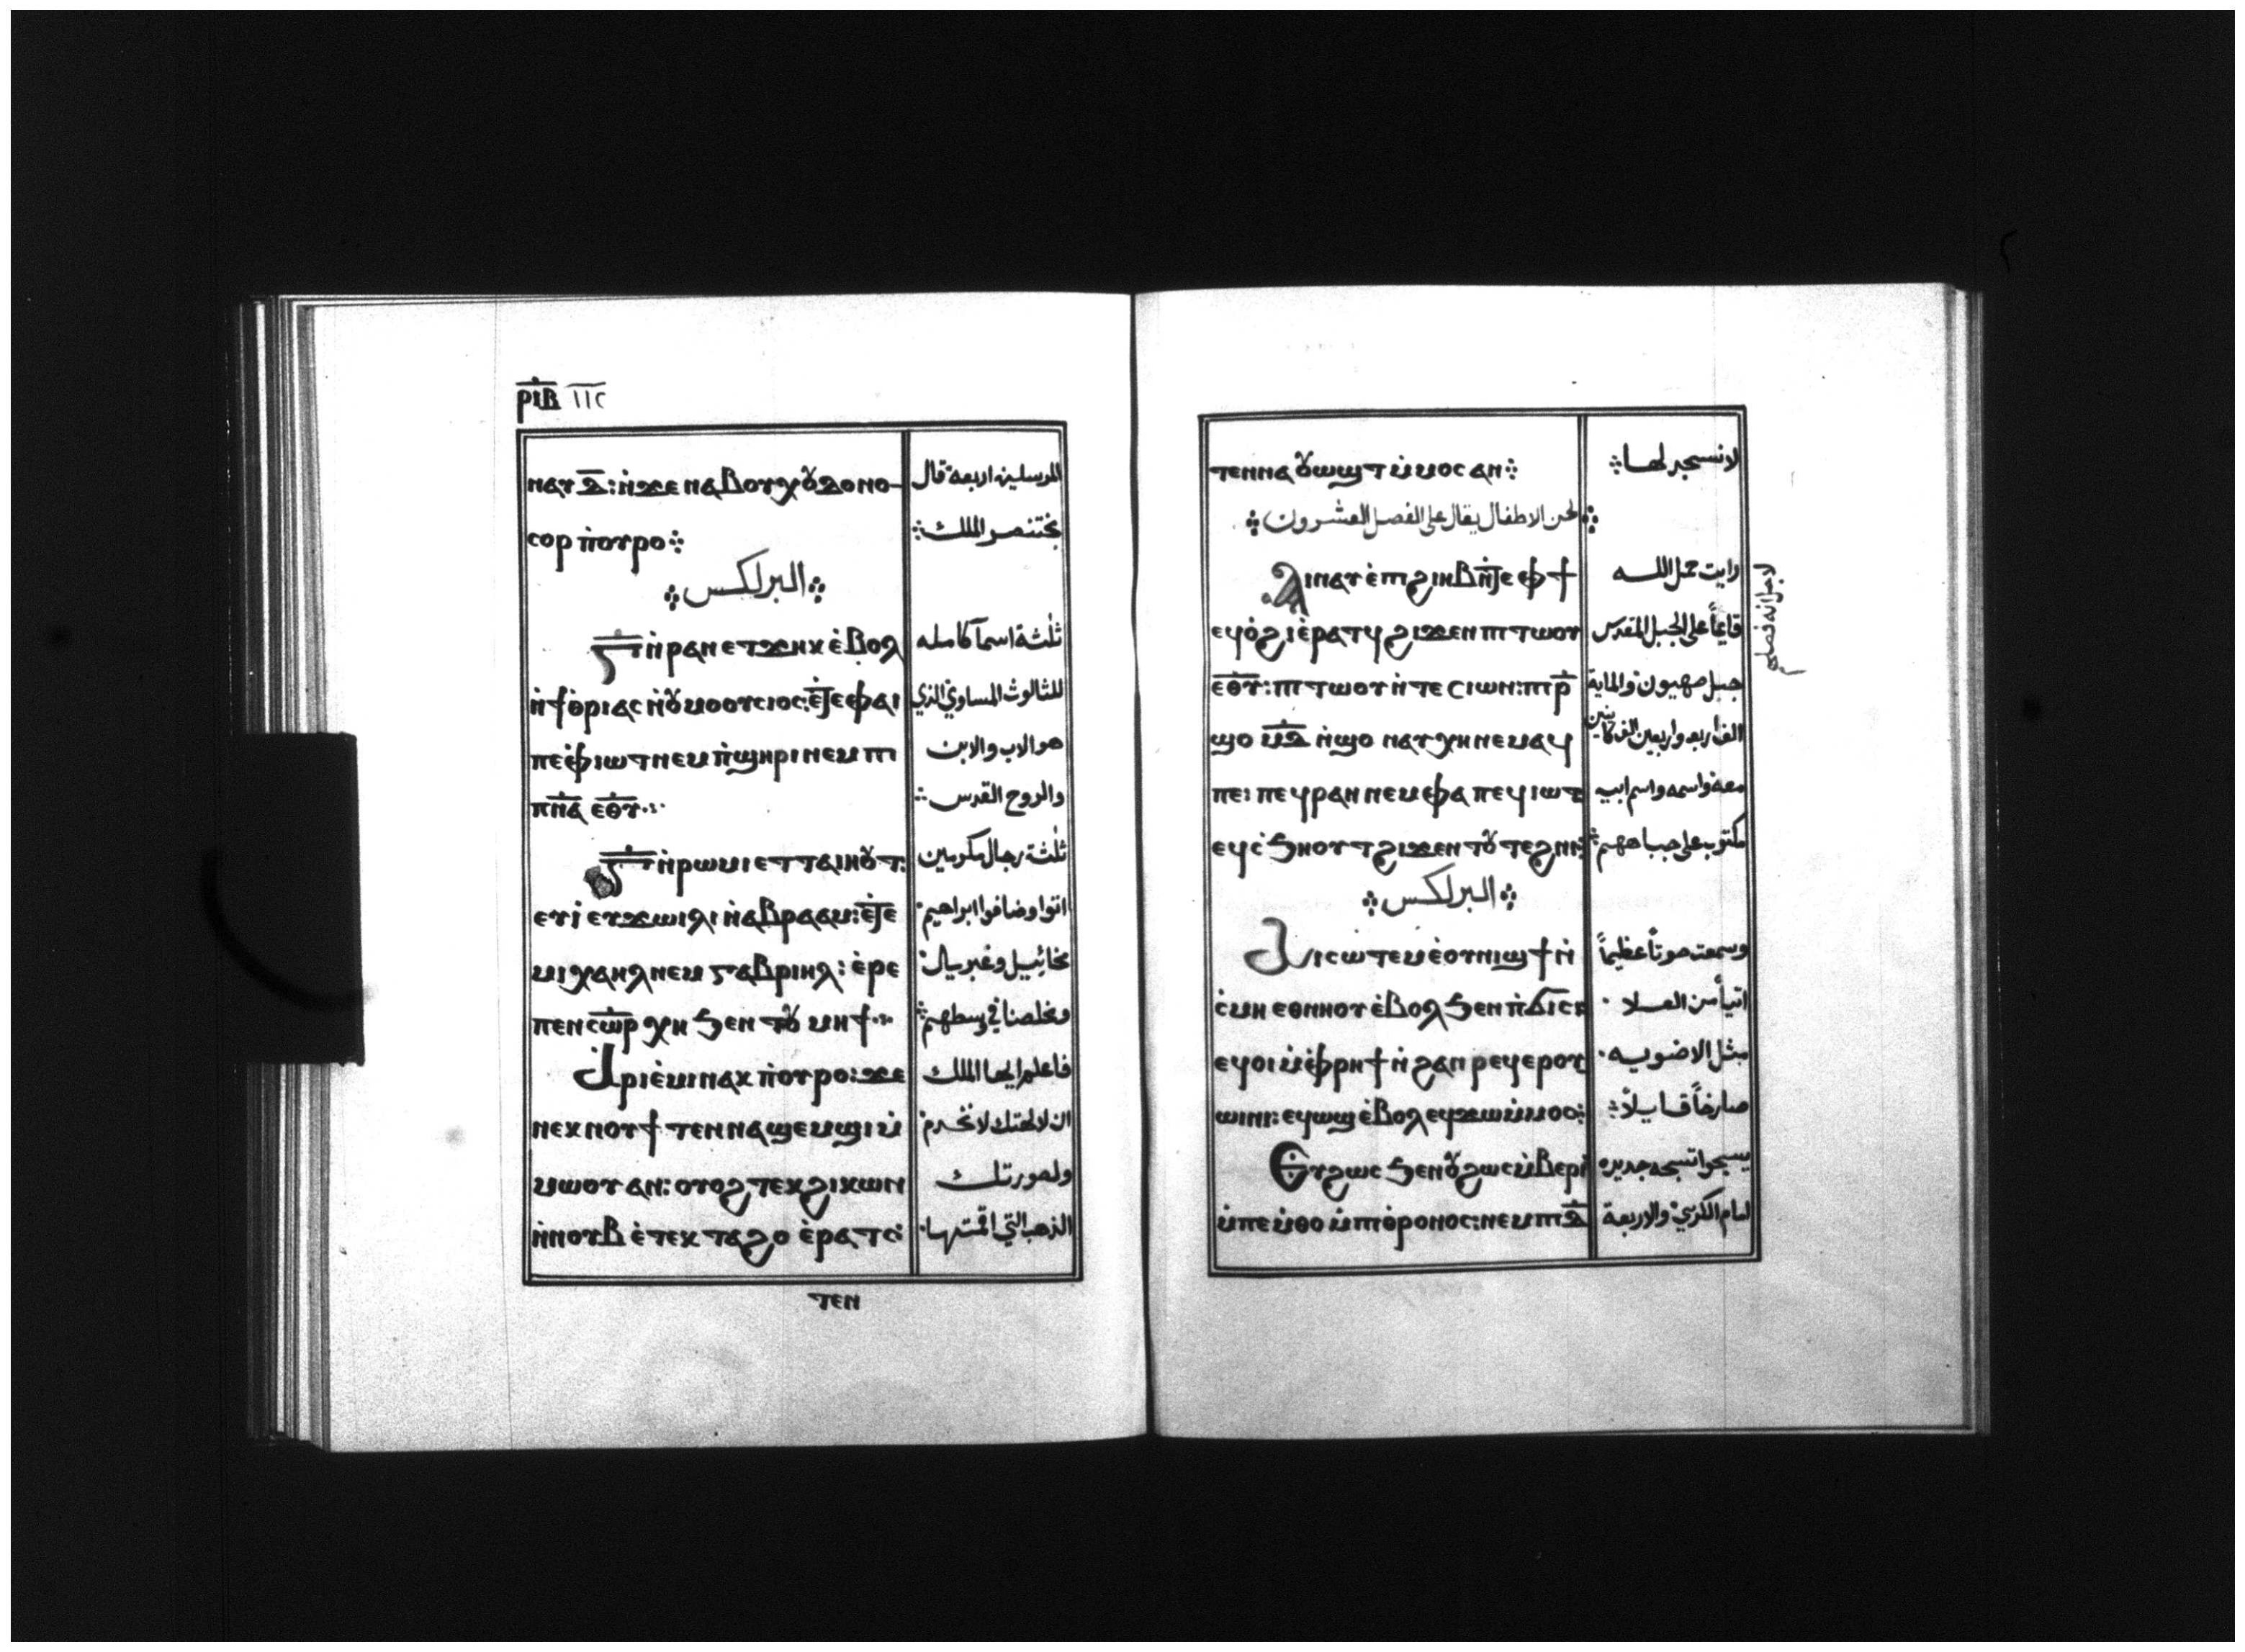 ⲣⲓⲃ ١١٢
ⲛⲁⲩⲇ̅: ⲛ̇ϫⲉ ⲛⲁⲃⲟⲩⲭⲟⲩⲇⲟⲛⲟ- المرسلين اربعة قال
ⲥⲟⲣ ⲡ̇ⲟⲩⲣⲟ⁘ بختنصر الملك⁘
⁘ البرلكس ⁘
ⲅ̅ ⲛ̇ⲣⲁⲛ ⲉⲧϫⲏⲕ ⲉ̇ⲃⲟⲗ ثلثة اسمآ كامله
ⲛ̇ϯⲑ̇ⲣⲓⲁⲥ ⲛ̇ⲟⲩⲙⲟⲟⲩⲥⲓⲟⲥ: ⲉ̅ⲧ̅ⲉ ⲫⲁⲓ للثالوث المساوي الذي
ⲡⲉ ⲫ̇ⲓⲱⲧ ⲛⲉⲙ ⲡ̇ϣⲏⲣⲓ ⲛⲉⲙ ⲡⲓ هو الاب والابن
ⲡ̅ⲛ̅ⲁ ⲉ̅ⲑ̅ⲩ̅⁘ والروح القدس⁘
ⲅ̅ ⲛ̇ⲣⲱⲙⲓ ⲉⲧⲧⲁⲓⲏⲟⲩⲧ: ثلثة رجال مكرمين
ⲉⲩⲓ̇ ⲉⲩϫⲱⲓⲗⲓ ⲛ̇ⲁⲃⲣⲁⲁⲙ: ⲉ̅ⲧ̅ⲉ اتوا وضافوا ابراهيم
ⲙⲓⲭⲁⲏⲗ ⲛⲉⲙ ⲅⲁⲃⲣⲓⲏⲗ: ⲉ̇ⲣⲉ مخائيل وغبريال:
ⲡⲉⲛⲥ̅ⲱ̅ⲣ̅ ⲭⲏ ϧⲉⲛ ⲧⲟⲩ ⲙⲏϯ⁘ ومخلصنا في وسطهم⁘
ⲁ̇ⲣⲓⲉ̇ⲙⲓ ⲛⲁⲕ ⲡ̇ⲟⲩⲣⲟ: ϫⲉ فاعلم ايها الملك
ⲛⲉⲕⲛⲟⲩϯ ⲧⲉⲛⲛⲁϣⲉⲙϣⲓ ⲙ̇ ان لالهتك لا نخدم
ⲙⲱⲟⲩ ⲁⲛ: ⲟⲩⲟϩ ⲧⲉⲕϩⲓⲕⲱⲛ ولصورتك
ⲛ̇ⲛⲟⲩⲃ ⲉ̇ⲧⲉⲕⲧⲁϩⲟ ⲉ̇ⲣⲁⲧⲥ̇ الذهب التي اقمتها
ⲧⲉⲛ
ⲧⲉⲛⲛⲁⲟⲩⲱϣⲧ ⲙ̇ⲙⲟⲥ ⲁⲛ⁘ لا نسجد لها⁘
⁘ لحن الاطفال يقال على الفصل العشرون ⁘
ⲁⲓⲛⲁⲩ ⲉ̇ⲡⲓϩⲓⲏⲃ ⲛ̅ⲧ̅ⲉ ⲫϯ رايت حمل الله
ⲉϥⲟ̇ϩⲓ ⲉ̇ⲣⲁⲧϥ ϩⲓϫⲉⲛ ⲡⲓⲧⲱⲟⲩ قايماً على الجبل المقدس
ⲉ̅ⲑ̅ⲩ̅: ⲡⲓⲧⲱⲟⲩ ⲛ̇ⲧⲉ ⲥⲓⲱⲛ: ⲡⲓⲣ̅ جبل صهيون والماية
ϣⲟ ⲙ̅ⲇ̅ ⲛ̇ϣⲟ ⲛⲁⲩⲭⲏ ⲛⲉⲙⲁϥ الف اربعه واربعين الف كاينين
ⲡⲉ: ⲡⲉϥⲣⲁⲛ ⲛⲉⲙ ⲫⲁ ⲡⲉϥⲓⲱⲧ معه واسمه واسم ابيه
ⲉϥⲥ̇ϧⲏⲟⲩⲧ ϩⲓϫⲉⲛ ⲧⲟⲩ ⲧⲉϩⲛⲓ⁘ مكتوب على جباههم⁘
⁘ البرلكس ⁘
ⲁⲓⲥⲱⲧⲉⲙ ⲉ̇ⲟⲩⲛⲓϣϯ ⲛ̇ وسمعت صوتاً عظيماً
ⲥ̇ⲙⲏ ⲉⲑⲛⲏⲟⲩ ⲉ̇ⲃⲟⲗ ϧⲉⲛ ⲡ̇ϭⲓⲥⲓ اتياً من العلا
ⲉϥⲟⲓ ⲙ̇ⲫ̇ⲣⲏϯ ⲛ̇ϩⲁⲛⲣⲉϥⲉⲣⲟⲩ مثل الاضويه
ⲱⲓⲛⲓ: ⲉϥⲱϣ ⲉ̇ⲃⲟⲗ ⲉϥϫⲱ ⲙ̇ⲙⲟⲥ⁘ صارخاً قايلاً⁘
ⲉⲩϩⲱⲥ ϧⲉⲛ ⲟⲩϩⲱⲥ ⲙ̇ⲃⲉⲣⲓ يسبحوا تسبحه جديده
ⲙ̇ⲡⲉⲙ̇ⲑⲟ ⲙ̇ⲡⲓⲑ̇ⲣⲟⲛⲟⲥ: ⲛⲉⲙ ⲡⲓⲇ̅ امام الكرسي والاربعة